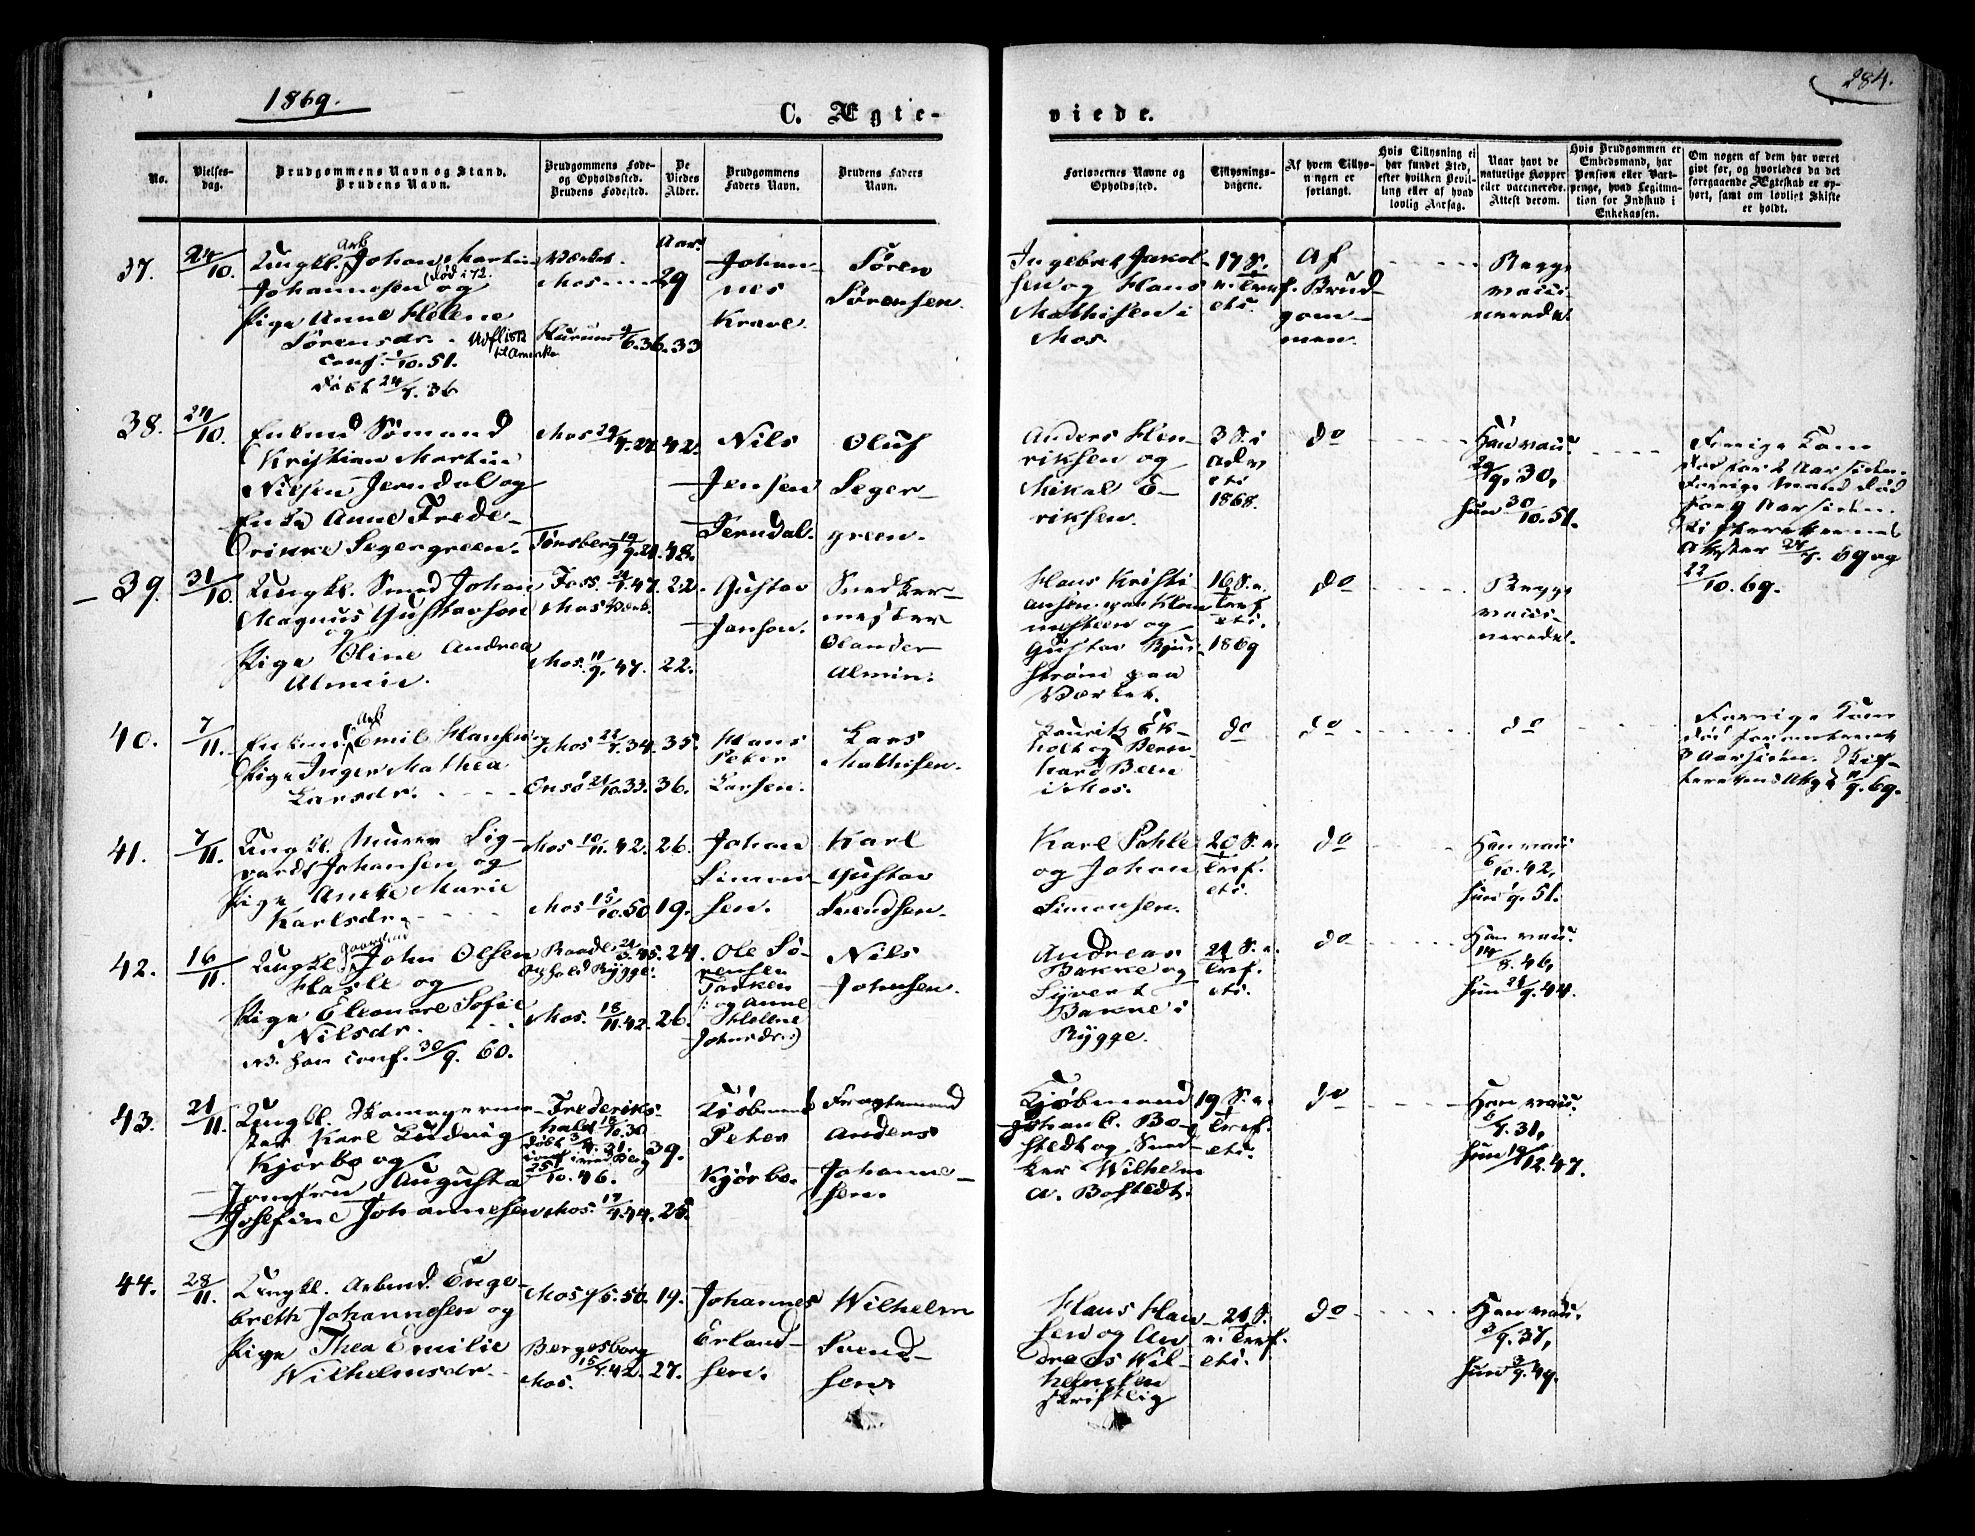 1869.
284.
C. Ægte-
viede.
No.
Vielses-
dag.
Brudgommens Navn og Stand.
Brudens Navn.
Brudgommens Føde-
og Opholdssted.
Brudens Fødested.
De
Viedes
Alder.
Brudgommens
Faders Navn.
Brudens Faders
Navn.
Forlovernes Navne og
Opholdssted.
Tillysnings-
dagene.
Af hvem Tillys-
ningen er
forlangt.
Hvis Tillysning ei
har fundet Sted,
efter hvilken Bevil-
ling eller af hvad
lovlig Aarsag.
Naar havt de
naturlige Kopper
eller vaccinerede.
Attest derom.
Hvis Brudgommen er
Embedsmand, har
Pension eller Vart-
penge, hvad Legitima-
tion for Indskud i
Enkekassen.
Om nogen af dem har været
givt før, og hvorledes da det
foregaaende Ægteskab er op-
hørt, samt om lovligt Skifte
er holdt.
37.
24/10.
Ungkl. Arb Johan Martin
Johannesen død i 72. og
Pige Anne Helene
Sørensdr. Udfl 1872
til Amerika
conf. 1/10.51.
døbt 24/7.36
Værket.
Mos
Hurum 9/6.36.
Aar.
29
33
Johan-
nes
Krave.
Søren
Sørensen.
Ingebret Jakob-
sen og Hans
Mathisen i
Mos.
17 S.
e. Tref.
eti.
Af
Brud-
gom-
men.
Begge
vacci-
nerede.
38.
24/10.
Enkmd Sømand
Kristian Martin
Nilsen Jerndal og
Enke Anne Frede-
rikke Segergreen.
Mos 29/4.27
Tønsberg 19/9.21
42.
48.
Nils
Jensen
Jerndal.
Oluf
Seger-
green.
Anders Hen-
riksen og
Mikal E-
riksen.
3 S. i
adv
eti
1868.
do
Han vacc.
29/9.30,
hun 30/10.51.
Forrige Kone
død for 2 Aar siden.
Forrige Mand død
for 9 Aar siden.
Skifterettens
Attester 24/7.69 og
22/10.69.
39.
31/10.
Ungkl. Smed Johan
Magnus Gustavson
og
Pige Oline Andrea
Almin.
Foss. 2/4.47.
Mos Værk.
Mos. 11/9.47.
22.
22.
Gustav
Janson.
Snedker-
mester
Olander
Almin.
Hans Kristi
ansen paa Klom
mesteen og
Gustav Bjur-
strøm paa
Værket.
16 S. e.
Tref.
eti.
1869
do
Begge
vacci-
nerede.
40.
7/11.
Enkmd Arb Emil Hansen og
Pige Inger Mathea
Larsdr.
Mos 21/7.34.
Ensø 21/10.33.
35.
36.
Hans
Peter
Larsen.
Lars
Mathisen.
Lauritz Ek-
holt og Bern-
hard Been
i Mos.
do
do
do
Forrige Kone
død for omtrent
3 Aar siden. Skif-
terettens Attest 11/9.69.
41.
7/11.
Ungkl. Murer Sig-
vard Johansen og
Pige Anete Marie
Karlsdr.
Mos 10/11.42.
Mos 15/10.50
26.
19.
Johan
Simon-
sen.
Karl
Gustav
Svendsen.
Karl Pahle
og Johan
Simonsen.
20 S. e.
Tref.
eti.
do
Han vacc.
6/10.42,
hun 1/9.51.
42.
16/11.
Ungkl. Gaardmd John Olsen
Hasle og
Pige Eleonore Sofie
Nilsdr.
NB. han conf. 30/9.60.
Raade 21/3.45.
Ophold Rygge.
Mos. 18/11.42.
24.
26.
Ole Sø-
rensen
Torken
/: og Anne
Helene
Johnsdr:)
Nils
Johnsen.
Andreas
Bakke og
Syvert
Bakke i
Rygge.
21 S. e.
Tref.
eti.
do
Han vacc.
14/8.46,
hun 21/9.44.
43.
21/11.
Ungkl. Skomagerme-
ster Karl Ludvig
Kjørbo og
Jomfru Augusta
Josefine Johannesen
Frederiks-
hald 18/10.30
døbt 3/4.31.
conf. i med Berg
25/10.46.
Mos. 17/4.44.
39.
25.
Kjøbmand
Peter
Kjørbo.
Fragtemand
Anders
Johanne-
sen.
Kjøbmand
Johan C. Bo-
stedt og Sned-
ker Wilhelm
A. Bostedt.
19 S. e.
Tref.
eti.
do
Han vacc.
6/7.31,
hun 19/12.47.
44.
28/11.
Ungkl. Arbmd. Enge-
breth Johannesen og
Pige Thea Emilie
Wilhelmsdr.
Mos 9/5.50.
Bergesborg
15/7.42.
Mos.
19.
27.
Johannes
Erland-
sen.
Wilhelm
Svend-
sen.
Hans Han-
sen og An-
dreas Wil-
helmsen
skriftlig
21 S.
e. Tref.
eti.
do
Han vacc.
3/9.37,
hun 3/9.49.